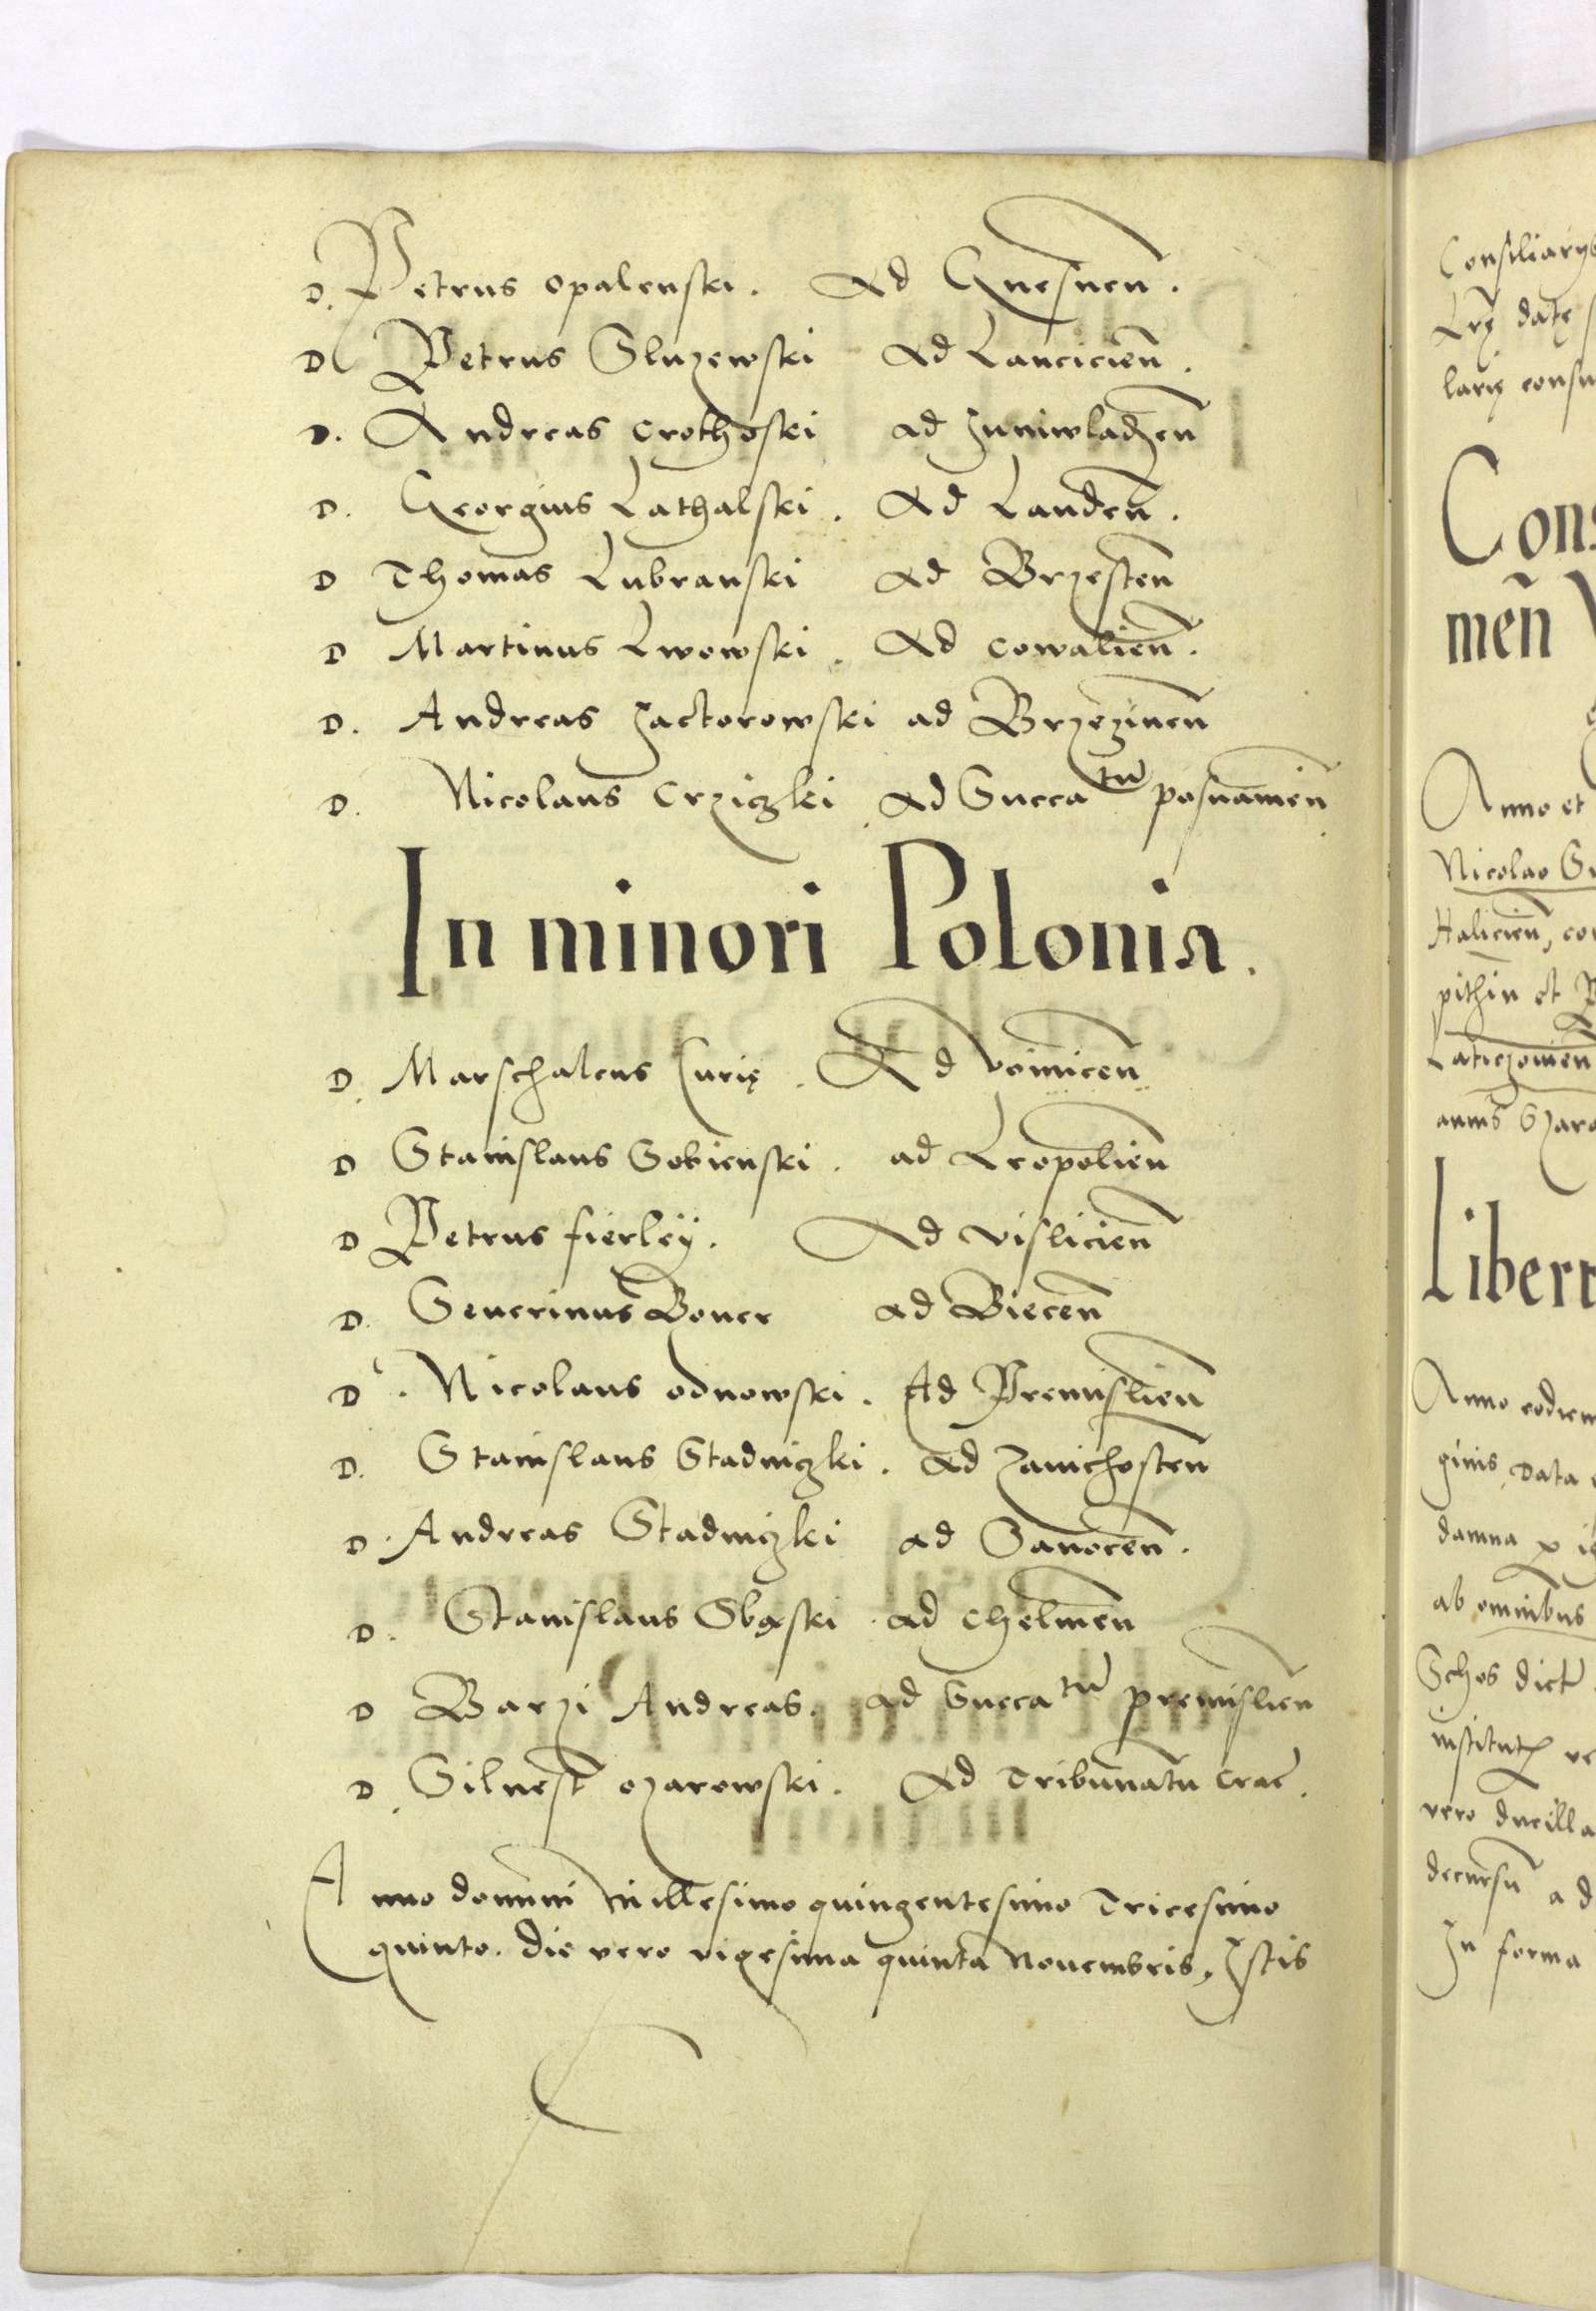 D. Petrus Opalenski. Ad Gnesnen̄.
D Petrus Sluzewski Ad Lancicien̄.
D. Andreas Crothoski ad Juniwladzen̄
D. Georgius Lathalski. Ad Landen̄.
D Thomas Lubranski Ad Brzesten̄
D Martinus Lwowski. Ad Cowalien̄.
D. Andreas Zactorowski ad Brzezinen̄
D. Nicolaus Crziczki Ad Succatū posnanien̄
In minori Polonia.
D. Marschalcus Curię. Ad Voinicen̄
D Stanislaus Sobienski. ad Leopolien̄
D Petrus fierlëÿ. Ad vislicien̄
D. Seuerinus Boner ad Biecen̄
D. Nicolaus odnowski. Ad Premislien̄
D. Stanislaus Stadniczki. Ad Zavichosten̄
D. Andreas Stadniczki ad Sanocen̄.
D. Stanislaus Sbąski ad Chelmen̄
D Barzi Andreas. ad Succatū premislien̄
D. Siluest̄ ozarowski. Ad Tribunatū Crac̄.
Anno domini Millesimo quingentesimo Tricesimo
quinto. die vero vigesima quinta Nouembris, Istis
Consiliarÿs
Lrę datę
larię consu
Cons
men̄
Anno et
Nicolao
Halicien̄,
pithin et
Laticzouien̄
Liberr
Anno eodem
ginis, Data
damna p
ab omnibus
Schos dict̄
vero
decursū ad
In forma